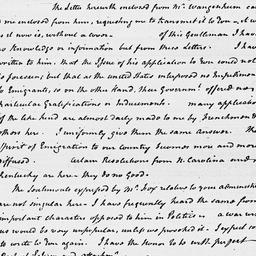 The Letter herewith enclosed from Mr. Wangenheim ca
me enclosed from him, requesting me to transmit it to You — it w
it now is, without a cover. of this Gentleman I have
no Knowledge or information but from these Letters. I have
written to him that the Issue of his application to You could not
foreseen, but that as the united States interposed no Impedimen
to Emigrants, so on the other Hand, their Governmt. offered no
particular Gratifications or Inducements. many applicatio
of the like kind are almost daily made to me by Frenchmen &
others here. I uniformly give them the same answer. The
Spirit of Emigration to our Country becomes more and more
diffused. Certain Resolutions from N. Carolina and
Kentucky are here — they do no good.
The Sentiments expressed by Mr. Joy relative to your administra
are not singular here — I have frequently heard the same from
important characters opposed to him in Politics — a war w
us would be very unpopular, unless we provoked it. I expect co
to write to You again. I have the Honor to be with perfect